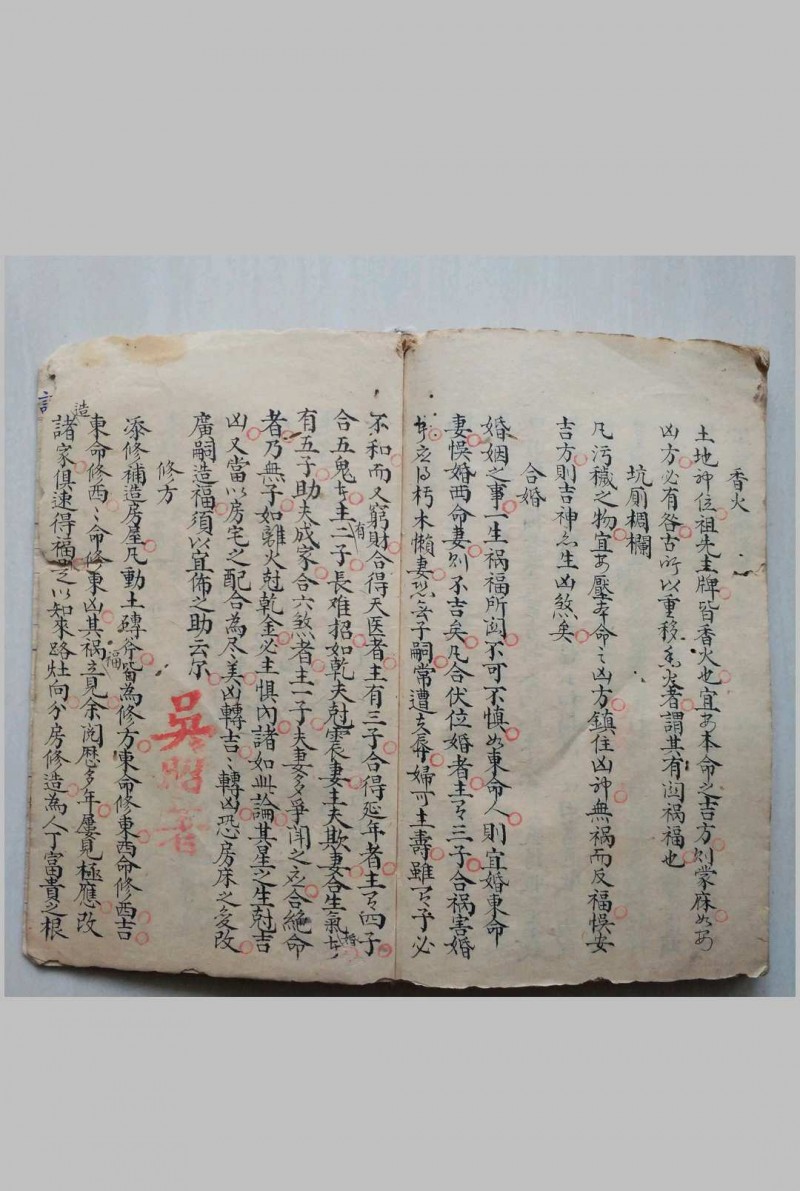 香火
土地神位祖先主牌皆香火也宜安本命之吉方則蒙庥如安
凶方必有咎古所以重移香火者謂其有関祸福也
坑厠椆欄
凡污穢之物宜安壓本命之凶方鎮住凶神無祸而反福悞安
吉方則吉神忘生凶煞矣
合婚
婚姻之事一生祸福所関不可不慎如東命人則宜婚東命
妻悞婚西命妻則不吉矣凡合伏位婚者主三子合祸害婚
朽木懶妻子嗣常遭辱婦可主壽雖子必
不和而又窮財合得天医者主有三子合得延年者主四子
合五鬼者主有二子長难招如乾夫尅震妻主夫欺妻合生氣婚者
有五子助夫成家合六煞者主一子夫妻多爭闹之合絶命
者乃無子如離火尅乾金必主惧內諸如此論其星之生尅吉
凶又當以房宅之配合為尽美凶轉吉〻轉凶恐房床之多改
廣嗣造福須以宜佈之助云尔
吳
著
修方
添修補造房屋凡動土磚斧皆為修方東命修東西命修西吉
東命修西〻命修東凶其祸福立見余阅歷多年屢見極應改造
諸家俱速得福是以知來路灶向分房修造為人丁富貴之根
言